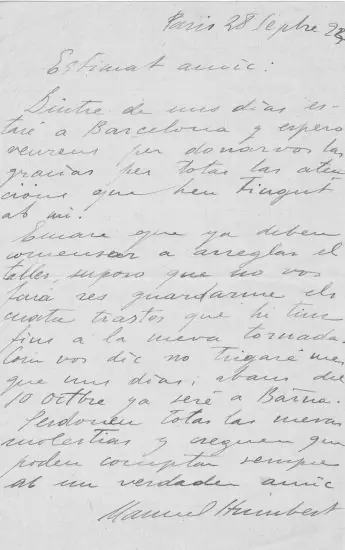 Paris 28 Sepbre
Estimat amic:
Dintre de uns dias es-
taré a Barcelona y espero
veureus per donarvos las
gracias per totas las aten
cións que heu tingut
ab mi.
Encare que ya deben
comensar a arreglar el
taller, suposo que no vos
fará res guardarme els
cuatre trastos que hi tinc
fins á la meva tornada.
Com vos dic no trigaré mes
que uns dias; abans del
10 octbre ya seré a Barna.
Perdonen totas las mevas
molestias y creguen que
poden comptar sempre
ab un verdader amic
Manuel Humbert